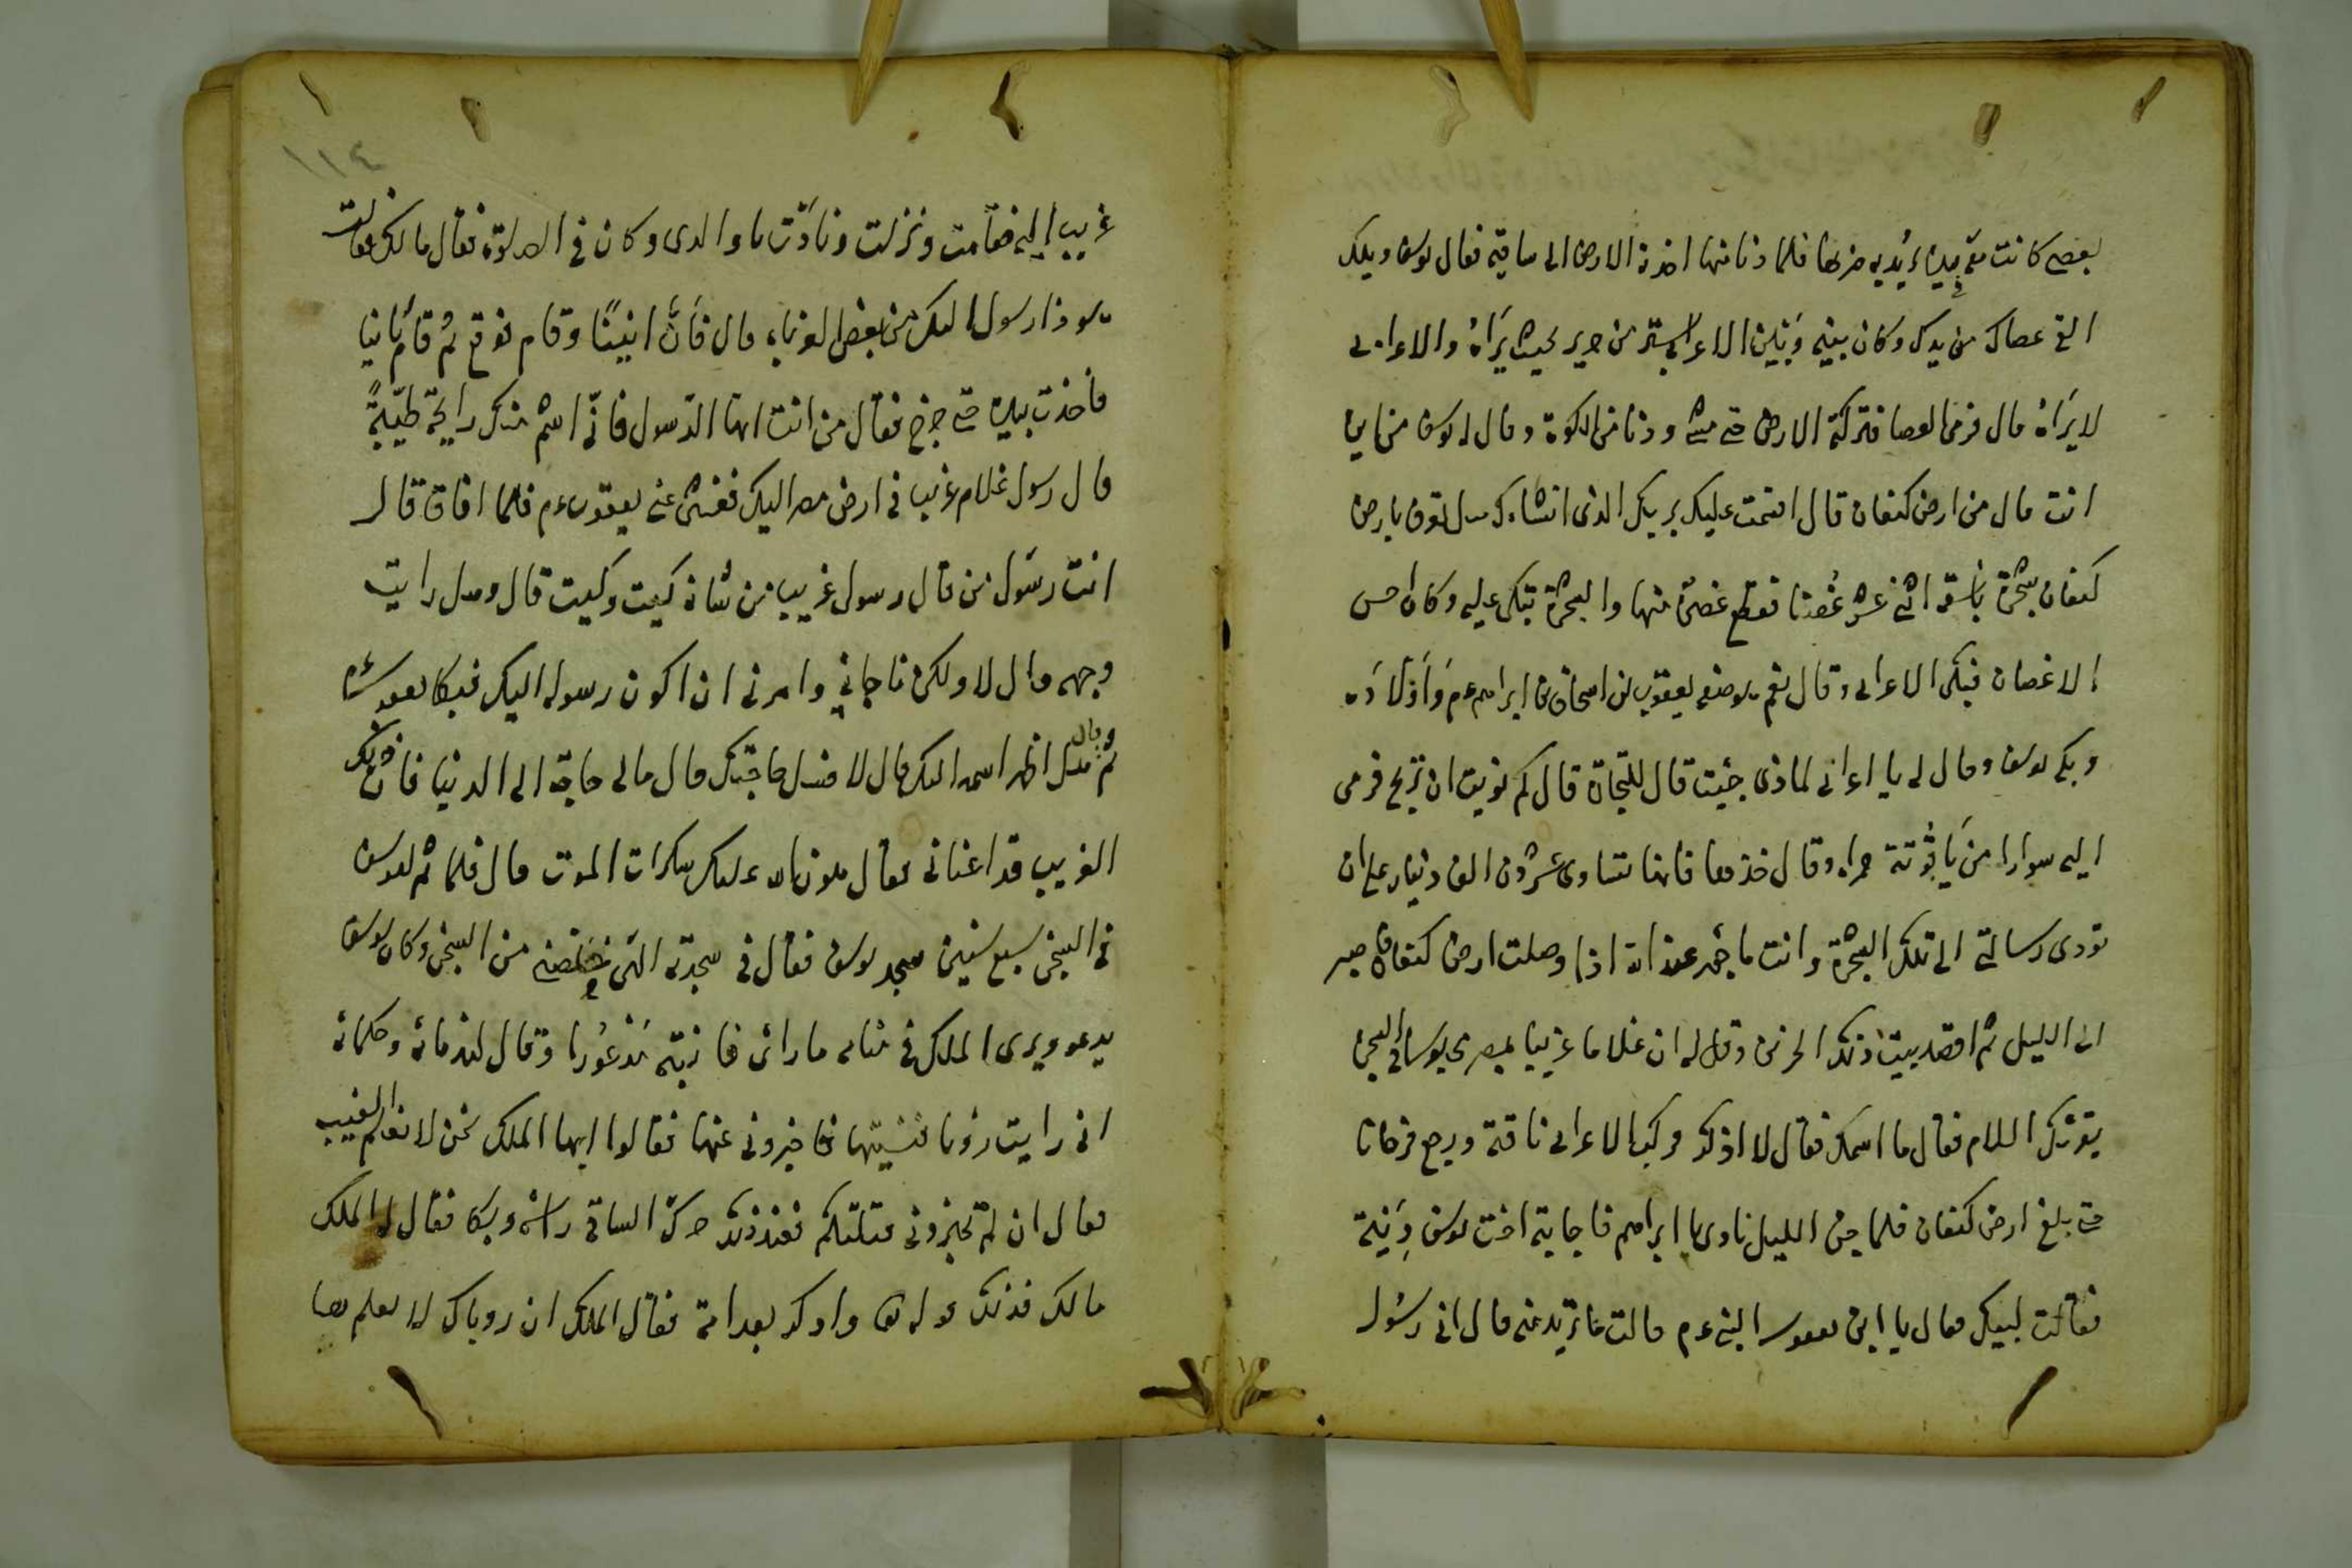 بعصى كانت معه بيده يريد به ضربها فلما دنا منها اخذته الارض الى ساقيه فقال يوسف ويلك
الق عصاك من يدك وكان بينه وَبَيْن الاعرابى ستر من حرير بحيث يَرَاهُ والاعرابى
لا يَرَاهُ قال فرمى العصا فتركته الارض حتى مشى ودنا من الكوة وقال له يوسف من اين
انت قال من ارض كنعان قال اقسمت عليك بربك الذى انشاءك هل تعرف بارض
كنعان شجرة باسقة اثنى عشر غُصْنا فقطع غصن منها والشجرة تبكى عليه وكان احسن
الاغصان فبكى الاعرابى وقال نعم هو صفة يعقوب بن اسحاق بن ابراهيم ع م وَاَوْلَادَه
وبكى يوسف وقال له يا اعرابى لماذى جئت قال للتجارة قال كم نويت ان تربح فرمى
اليه سوارا من يَاقُوتة حمراء وقال خذ هذا فانها تساوى عشرون الف دينار على ان
تودى رسالتى الى تلك الشجرة وانت ماجور عند الله اذا وصلت ارض كنعان فاصبر
الى الليل ثم اقصد بيت ذلك الحزين وقل له ان غلاما غريبا بمصر محبوسا فى السجن
يقرئك السلام فقال ما اسمك فقال لا اذكر فركب الاعرابى ناقته ورجع فرحانا
حتى بلغ ارض كنعان فلما جن الليل نادى يا ابراهيم فاجابته اخت يوسف دِينة
فقالت لبيك فقال يا ابن يعقوب النبى ع م قالت ما تريد منه قال انى رسُول
١١٤
غريب اليه فقامت ونزلت ونادَت يا والدى وكان فى الصلوة فقال مالك فقالت
هو ذا رسول اليك من بعض الغرباء قال فَاَنَّ انينًا وقام فوقع ثم قامَ ثانيا
فاخذت بيده حتى خرج فقال من انت ايها الرسول فانّى اشم منك رايحة طيّبةً
قال رسول غلام غريب فى ارض مصر اليك فغشى على يعقوب ع م فلما افاق قال
انت رسَول من قال رسول غريب من شانه كيت وكيت قال وهل رايت
وجهه قال لا ولكن ناجانى وامرنى ان اكون رسوله اليك فبكا يعقوب
ثم وقال هل اظهر اسمه اليك قال لا فسل حاجتك قال مالى حاجة الى الدنيا فان ذلك
الغريب قد اغنانى فقال هون الله عليك سكرات الموت قال فلما تم ليوسف
فى السجن سبع سنين سجد يوسف فقال فى سجدته الهى خلصنى من السجن وكان يوسف
يدعو ويرى الملك فى منامه ما راى فانتبه مَذْعُورا وقال لندمائه وحكمائه
انى رايت رؤيا فنسيتها فاخبرونى عنها فقالوا ايها الملك نحن لا نعلم الغيب
فقال ان لم تخبرونى قتلتكم فعند ذلك حرك الساقى راسه وبكا فقال له الملك
مالك فذلك قوله تعالى وادكر بعد امة فقال الملك ان روياك لا يعلم بها